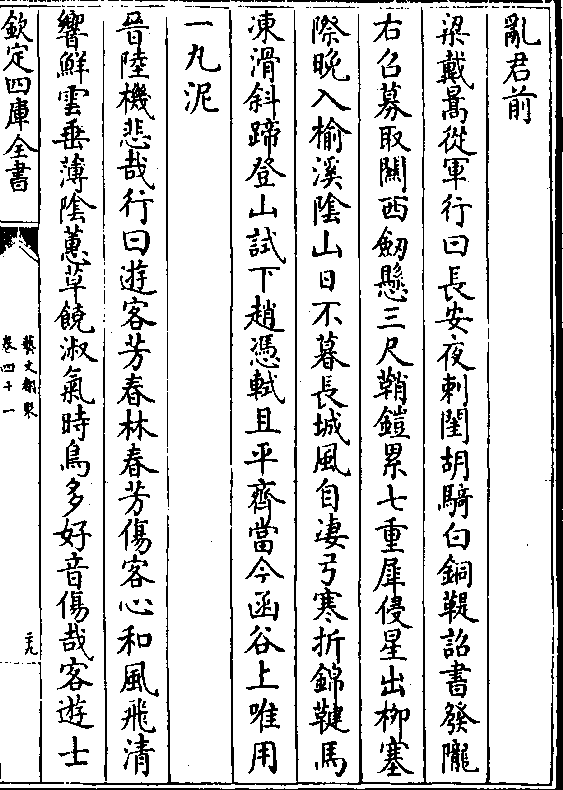 亂君前
梁戴暠從軍行曰長安夜刺閨胡騎白銅鞮詔書發隴
右召募取關西劒懸三尺鞘鎧累七重犀侵星出栁塞
際晚入榆溪陰山日不暮長城風自凄弓寒折錦鞬馬
凍滑斜蹄登山試下趙憑軾且平齊當今函谷上唯用
一丸泥
晉陸機悲哉行曰遊客芳春林春芳傷客心和風飛清
響鮮雲垂薄陰蕙草饒淑氣時鳥多好音傷哉客遊士
欽定四庫全書
藝文類聚
卷四十一
二十九